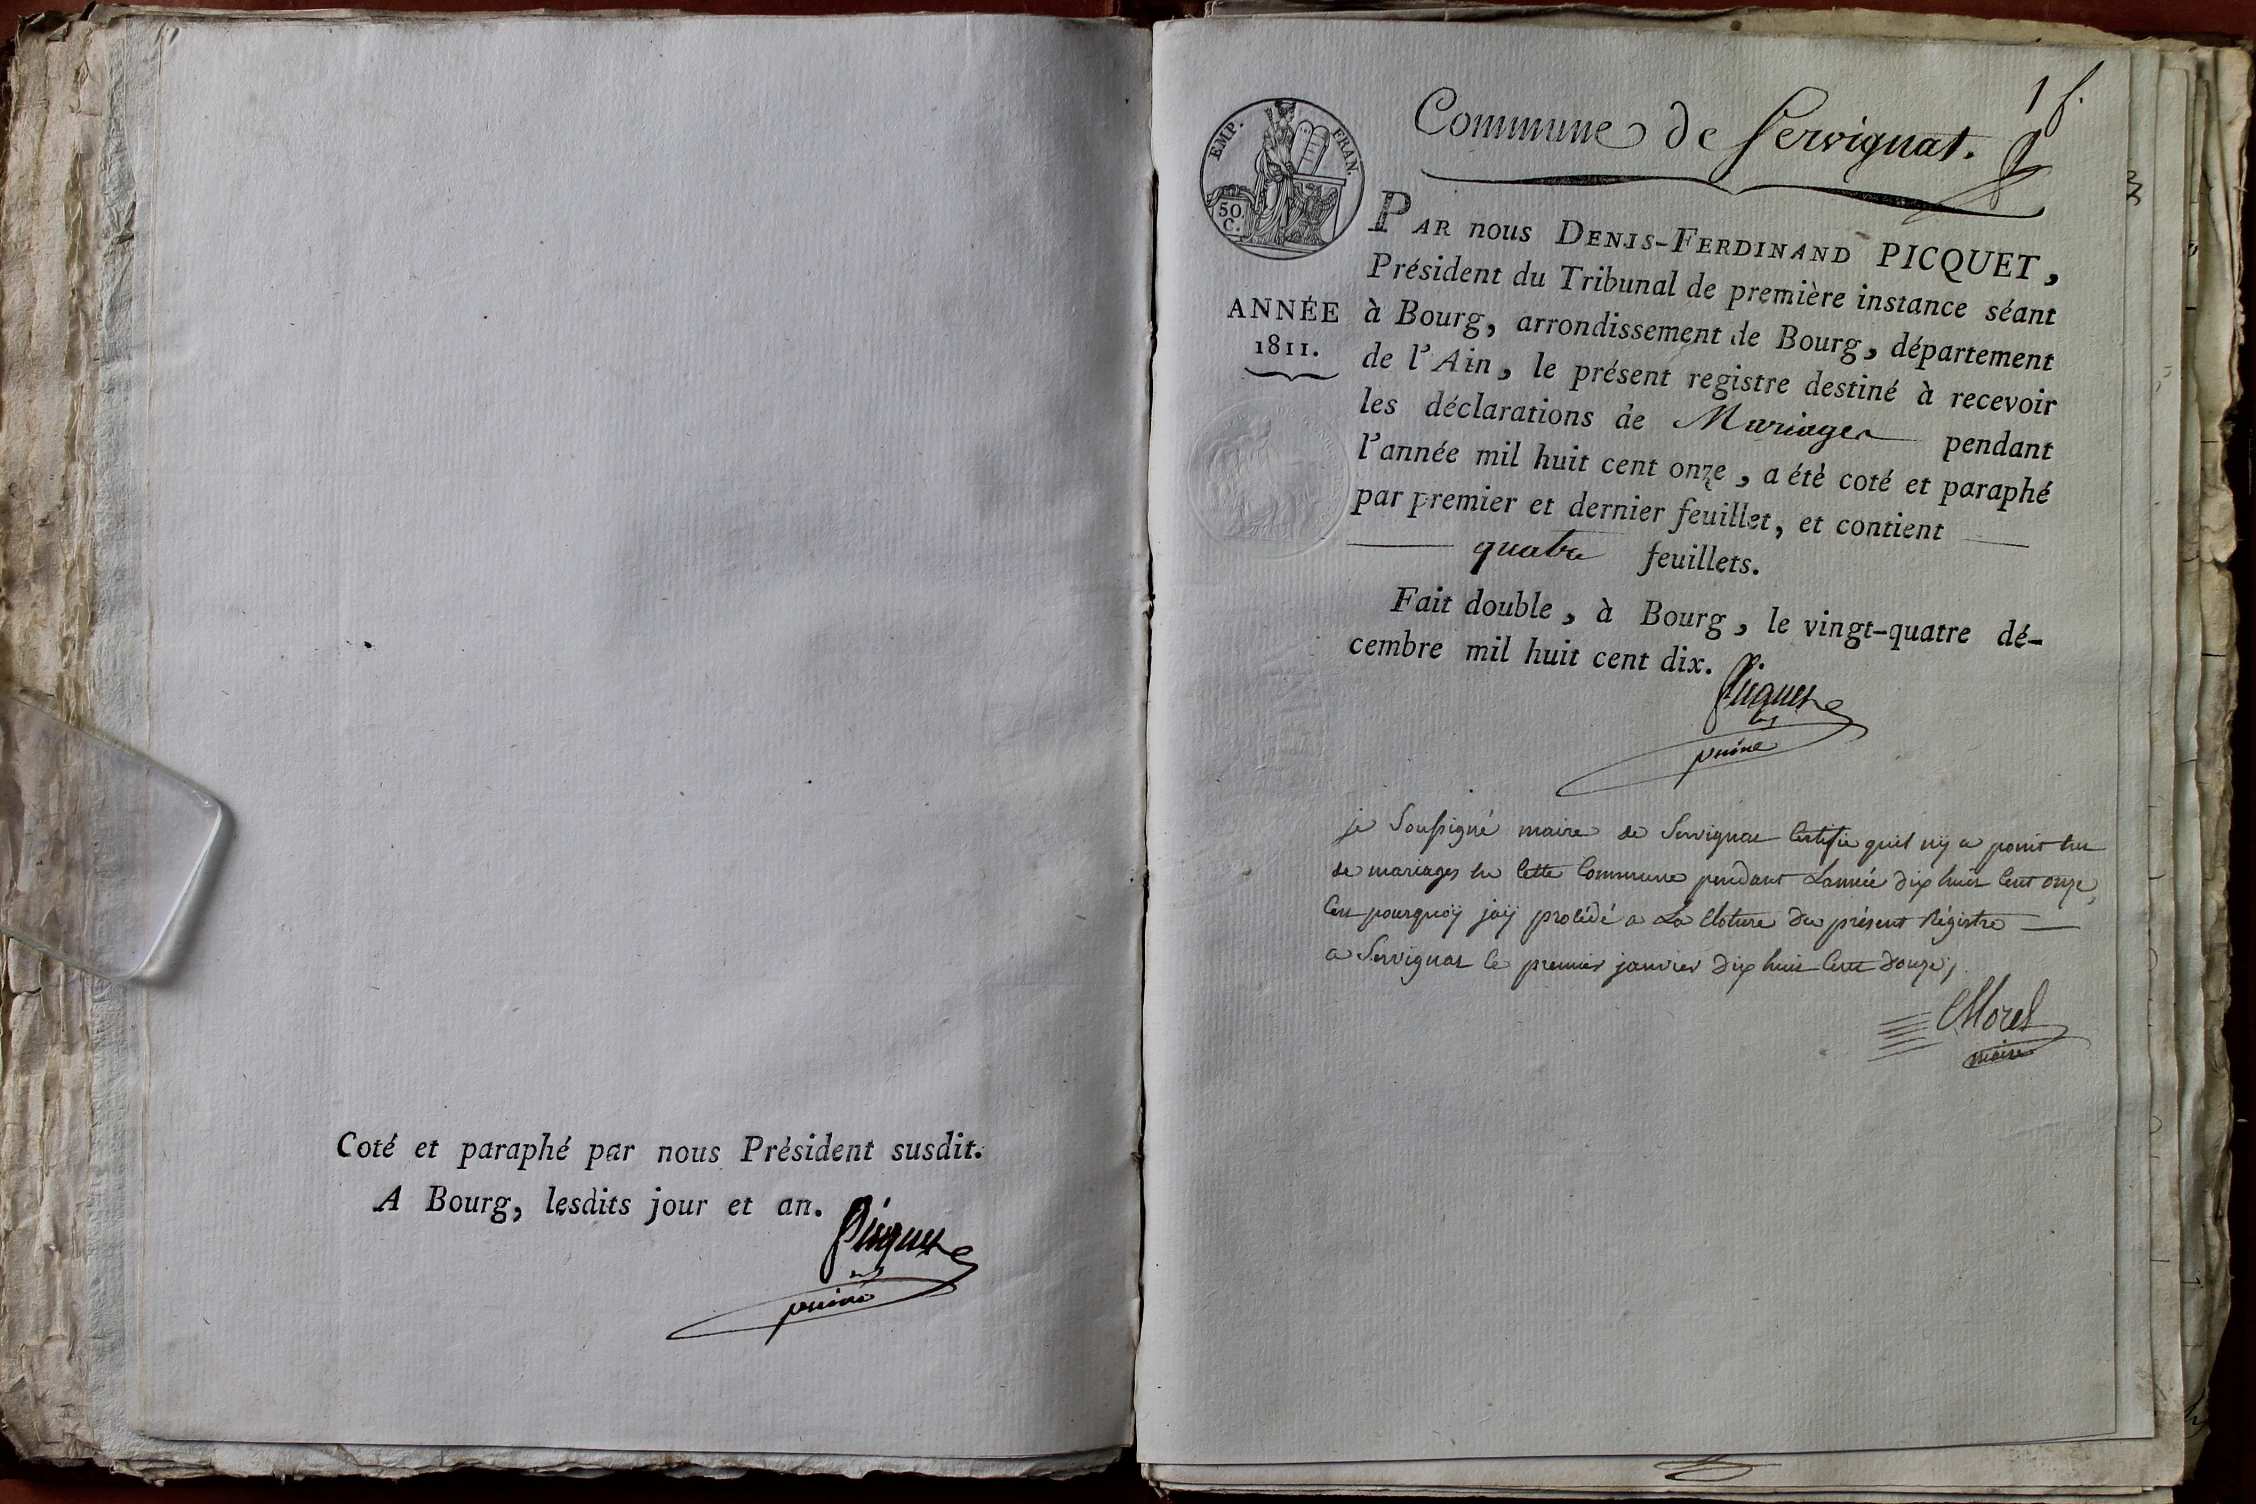 Coté et paraphé par nous Président susdit.
A Bourg, lesdits jour et an.
Picquet
puiné
1 f.
Commune de Servignat.
EMP. FRAN.
50
C.
PAR nous DENIS-FERDINAND PICQUET,
Président du Tribunal de première instance séant
ANNÉE
1811.
à Bourg, arrondissement de Bourg, département
de l'Ain, le présent registre destiné à recevoir
les déclarations de Mariages pendant
l'année mil huit cent onze, a été coté et paraphé
par premier et dernier feuillet, et contient
quatre feuillets.
Fait double, à Bourg, le vingt-quatre dé-
cembre mil huit cent dix.
Picquet
puiné
je soussigné maire de Servignat Certifie quil nÿ a point eu
de mariages en Cette Commune pendant Lannée dix huit Cent onze,
Cest pourquoÿ jaÿ procédé a La Cloture du présent Régistre
a Servignat le premier janvier dix huit Cent douze,
Morel
maire